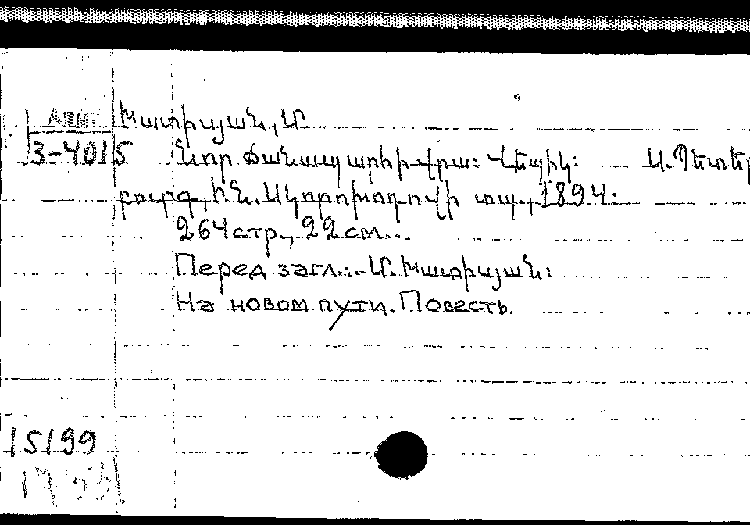 Արм.
З-4015
Խատիսյան, Մ.
Նոր ճանապարհի վրա: Վեպիկ: Ս.Պետեր
բուրգ, Ի.Ն. Սկորոխոդովի տպ., 1894:
264 стр., 22 см...
Перед загл.:- Մ. Խատիսյան:
На новом пути. Повесть.
15199